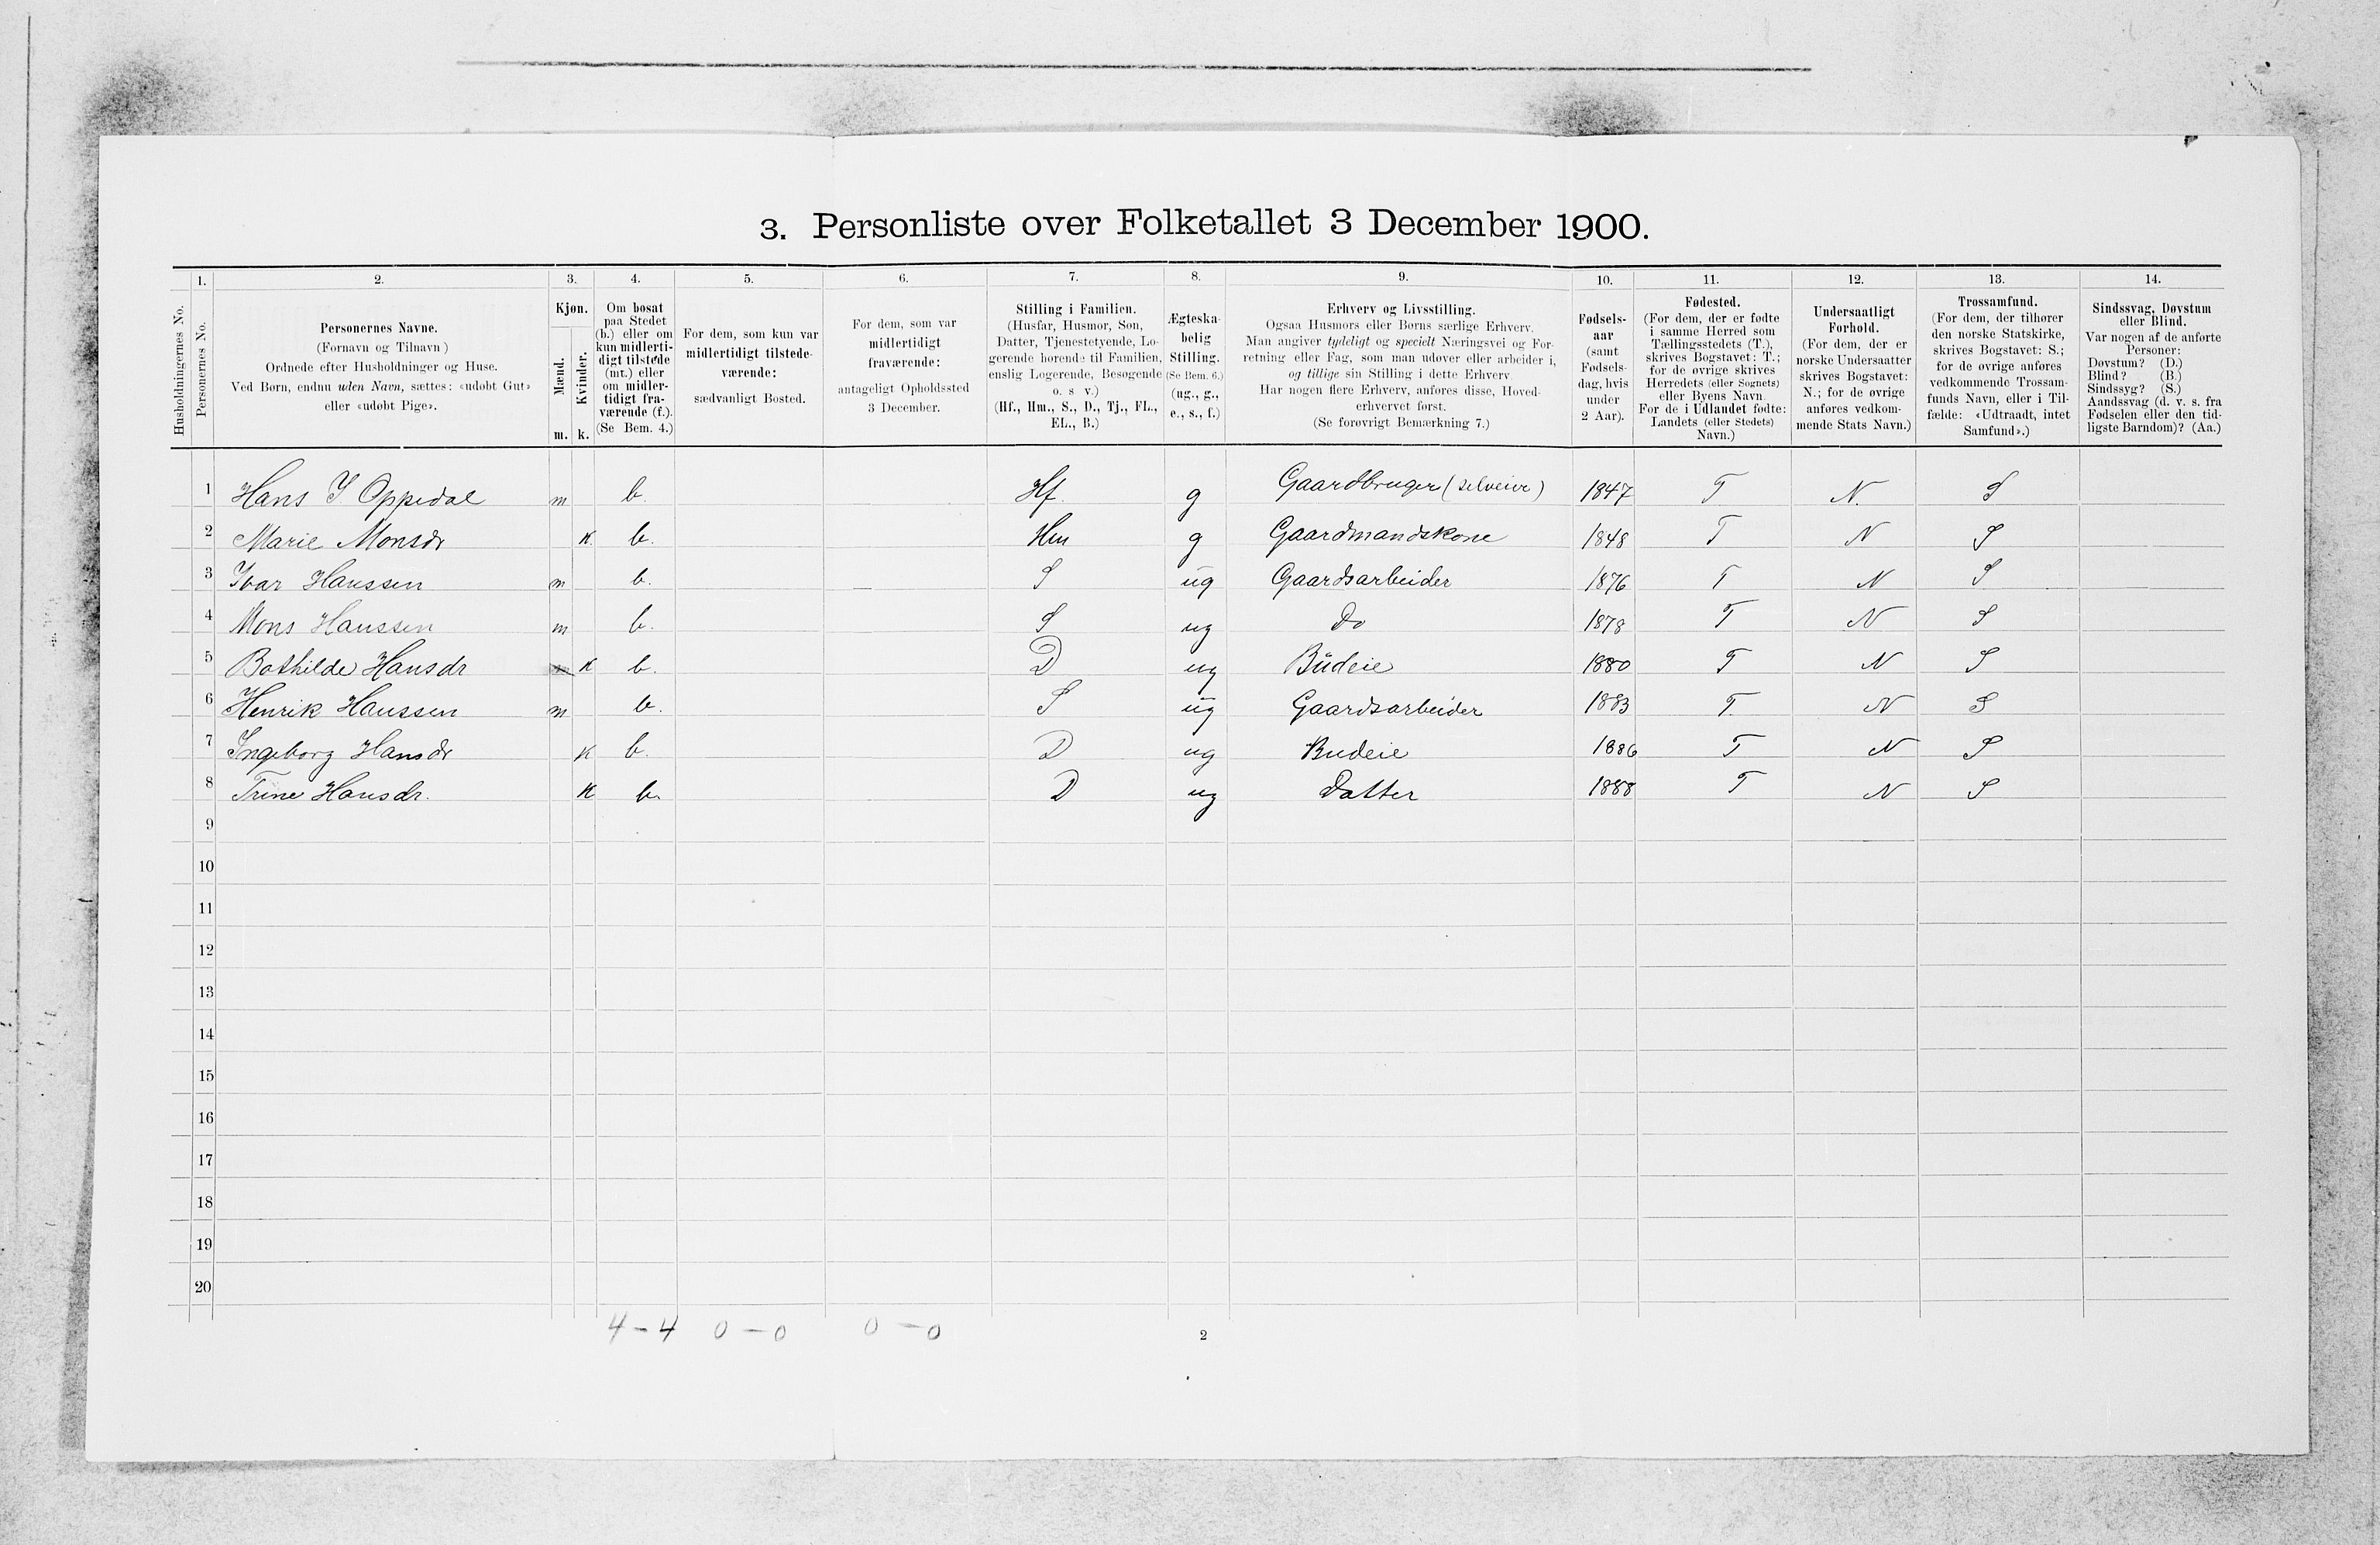 3. Personliste over Folketallet 3 December 1900.
1. 2. 3. 4. 5. 6. 7. 8. 9. 10. 11. 12. 13. 14.
Husholdningernes No.
Personernes No.
Personernes Navne.
(Fornavn og Tilnavn)
Ordnede efter Husholdninger og Huse.
Ved Børn, endnu uden Navn, sættes: «udøbt Gut»
eller «udøbt Pige».
Kjøn.
Mænd.
Kvinder.
m. k.
Om bosat
paa Stedet
(b.) eller om
kun midlerti-
digt tilstede
(mt.) eller
om midler-
tidigt fra-
værende (f.).
(Se Bem. 4.)
For dem, som kun var
midlertidigt tilstede-
værende:
sædvanligt Bosted.
For dem, som var
midlertidigt
fraværende:
antageligt Opholdssted
3 December.
Stilling i Familien.
(Husfar, Husmor, Søn,
Datter, Tjenestetyende, Lo-
gerende hørende til Familien,
enslig Logerende, Besøgende
o. s v.)
(Hf., Hm., S., D., Tj., FL.,
EL., B.)
Ægteska-
belig
Stilling.
(Se Bem. 6.)
(ug., g.,
e., s., f.)
Erhverv og Livsstilling.
Ogsaa Husmors eller Børns særlige Erhverv.
Man angiver tydeligt og specielt Næringsvei og For-
retning eller Fag, som man udøver eller arbeider i,
og tillige sin Stilling i dette Erhverv
Har nogen flere Erhverv, anføres disse, Hoved-
erhvervet først.
(Se forøvrigt Bemærkning 7.)
Fødsels-
aar
(samt
Fødsels-
dag, hvis
under
2 Aar).
Fødested.
(For dem, der er fødte
i samme Herred som
Tællingsstedets (T.),
skrives Bogstavet: T.;
for de øvrige skrives
Herredets (eller Sognets)
eller Byens Navn.
For de i Udlandet fødte:
Landets (eller Stedets)
Navn.)
Undersaatligt
Forhold.
(For dem, der er
norske Undersaatter
skrives Bogstavet:
N.; for de øvrige
anføres vedkom-
mende Stats Navn.)
Trossamfund.
(For dem, der tilhører
den norske Statskirke,
skrives Bogstavet: S.;
for de øvrige anføres
vedkommende Trossam-
funds Navn, eller i Til-
fælde: «Udtraadt, intet
Samfund».)
Sindssvag, Døvstum
eller Blind.
Var nogen af de anførte
Personer:
Døvstum? (D.)
Blind? (B.)
Sindssyg? (S.)
Aandssvag (d. v. s. fra
Fødselen eller den tid-
ligste Barndom)? (Aa.)
1 Hans I. Oppedal m b. Hf. g Gaardbruger (selveier) 1847 T N. S
2 Marie Monsdr K. b. Hm g Gaardmandskone 1848 T N S
3 Ivar Hanssen m b. S ug Gaardsarbeider 1876 T N S
4 Mons Hanssen m b. S ug Do 1878 T N S
5 Bothilde Hansdr K b. D ug Budeie 1880 T N S
6 Henrik Hanssen m b. S ug Gaardsarbeider 1883 T. N S
7 Ingeborg Hansdr K b. D ug Budeie 1886 T N S
8 Trine Hansdr. K b. D ug Datter 1888 T N S
9
10
11
12
13
14
15
16
17
18
19
20
4 - 4 0 - 0 0 - 0
2